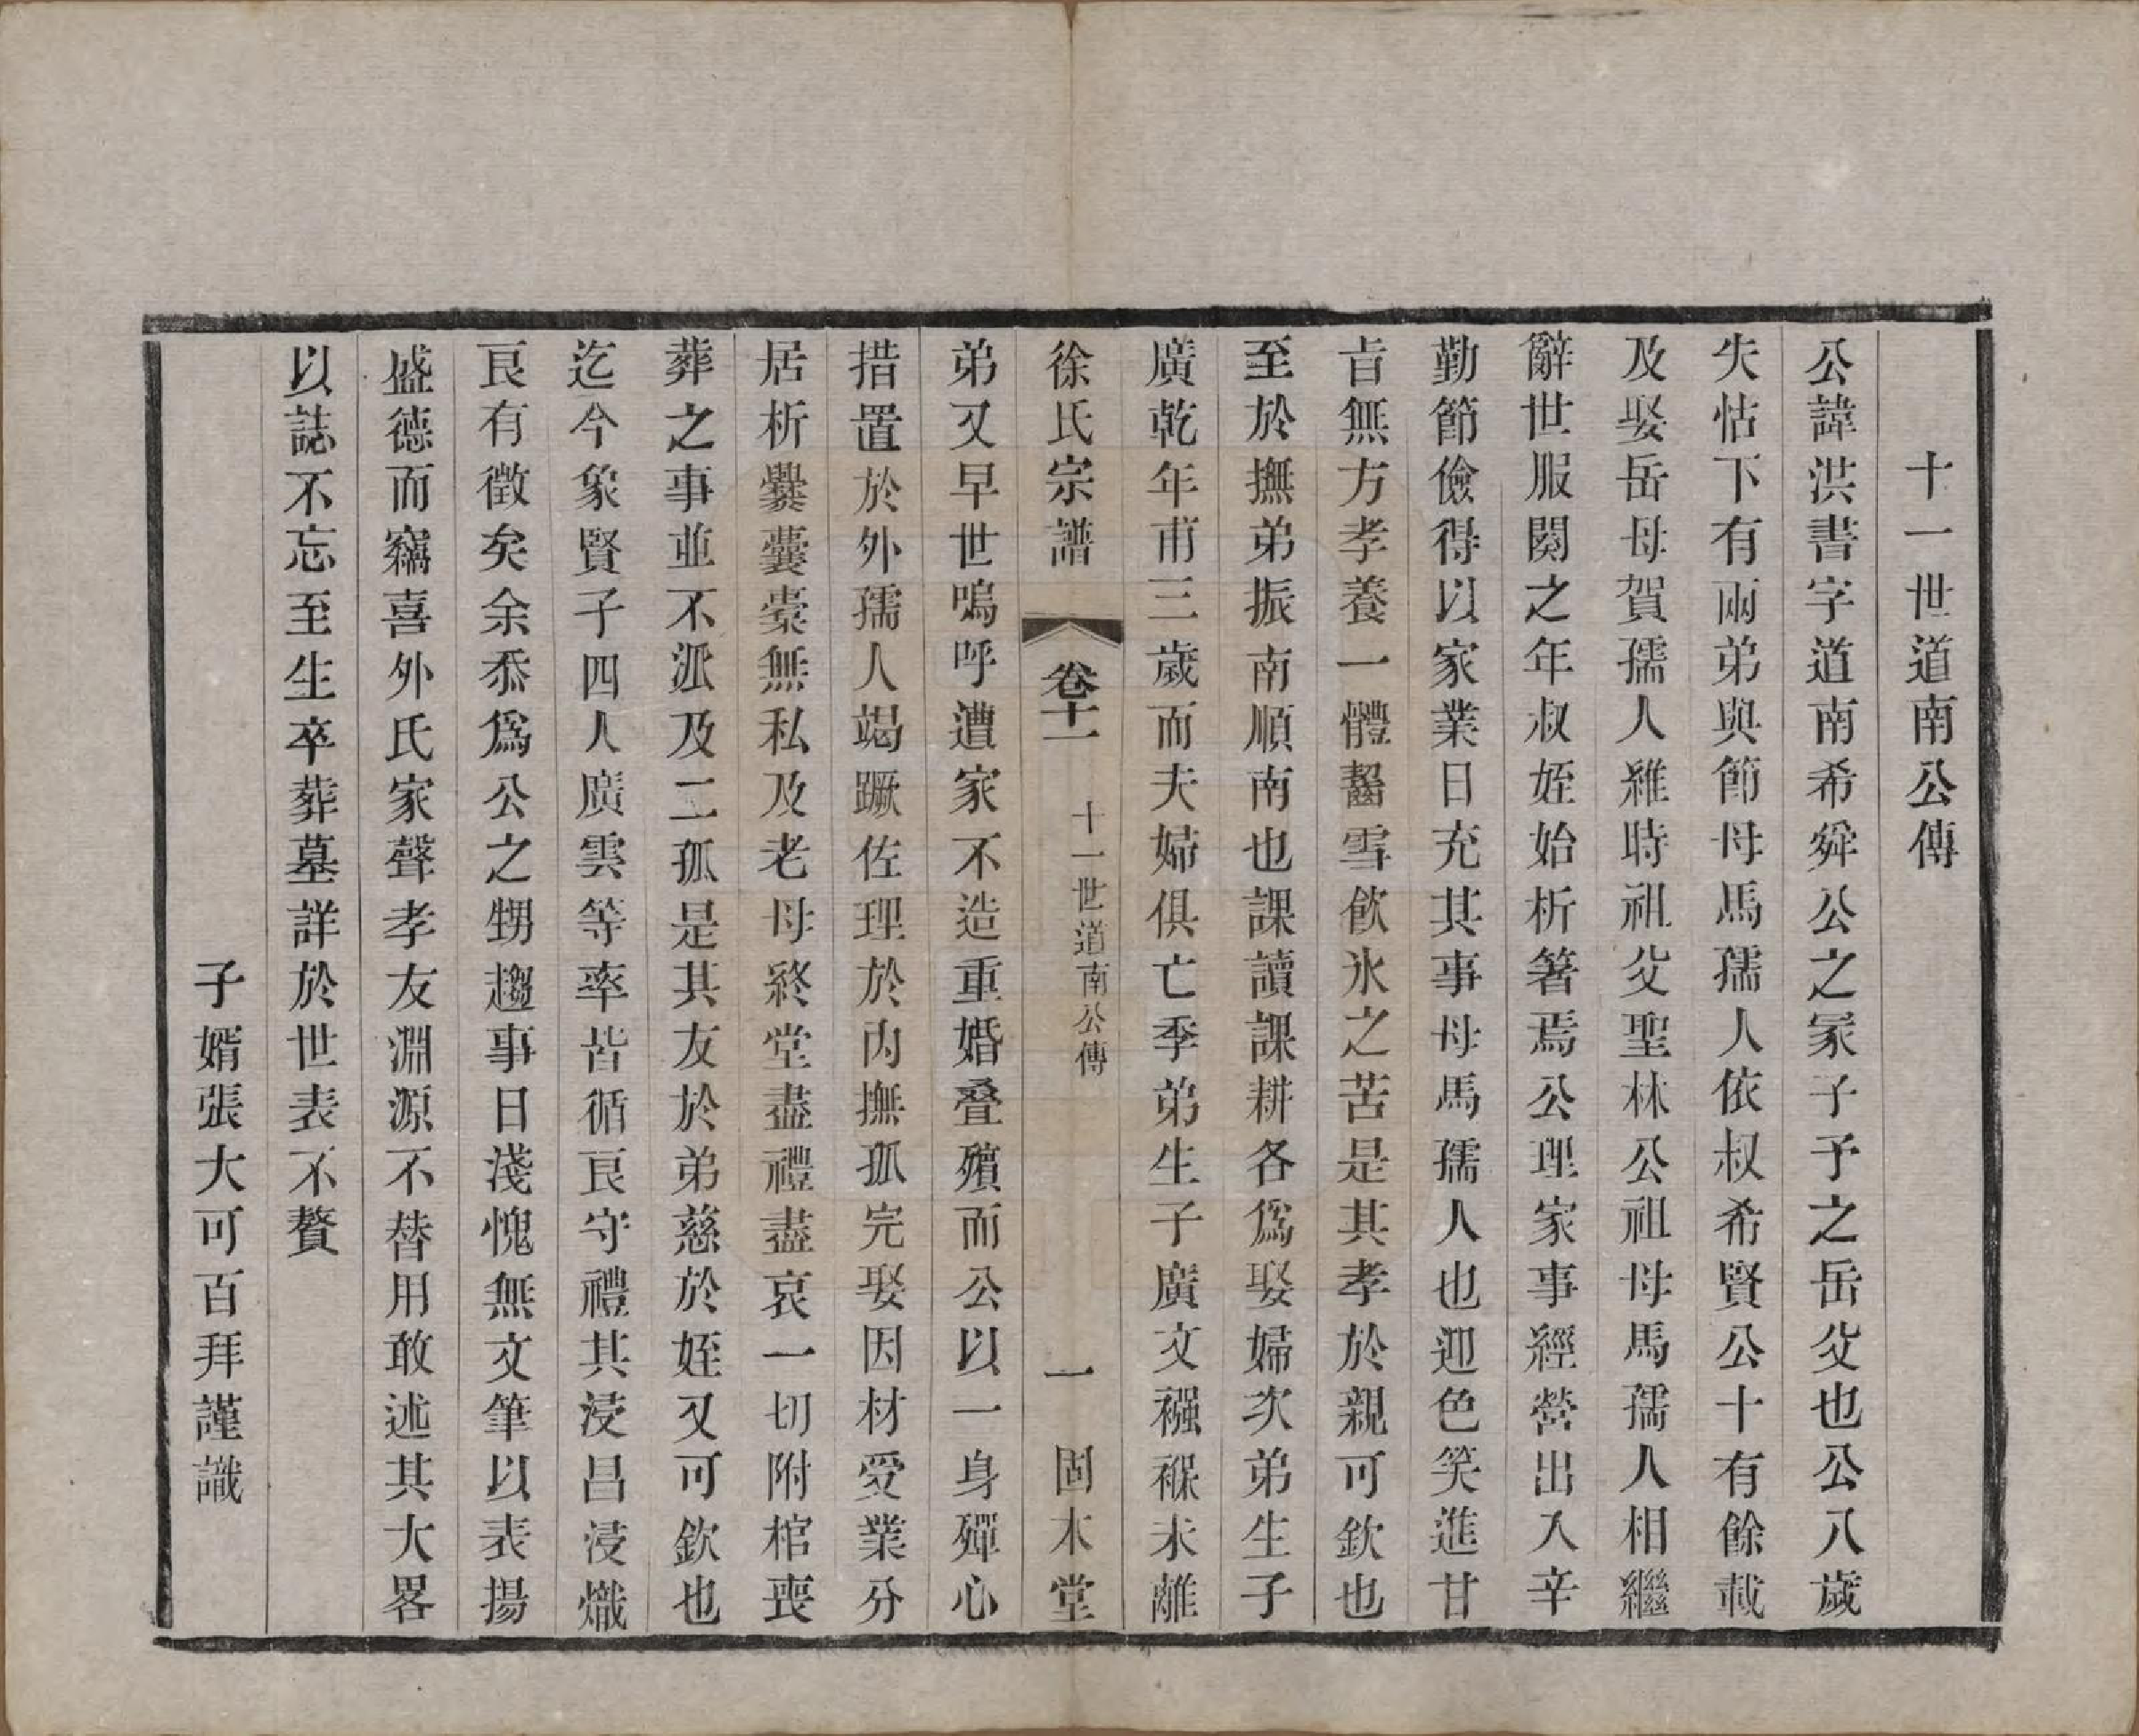 十一世道南公傳
公諱洪書字道南希舜公之冢子予之岳父也公八歲
失怙下有兩弟與節母馬孺人依叔希賢公十有餘載
及娶岳母賀孺人維時祖父聖林公祖母馬孺人相繼
辭世服闋之年叔姪始析箸焉公理家事經營出入辛
勤節儉得以家業日充其事母馬孺人也迎色笑進甘
旨無方孝養一體齧雪飲氷之苦是其孝於親可欽也
至於撫弟振南順南也課讀課耕各爲娶婦次弟生子
廣乾年甫三歲而夫婦俱亡季弟生子廣文襁褓未離
徐氏宗譜 卷十一 十一世道南公傳 一 固本堂
弟又早世嗚呼遭家不造重婚叠殯而公以一身殫心
措置於外孺人竭蹶佐理於内撫孤完娶因材受業分
居析爨囊橐無私及老母終堂盡禮盡哀一切附棺喪
葬之事並不派及二孤是其友於弟慈於姪又可欽也
迄今象賢子四人廣雲等率皆循良守禮其浸昌浸熾
良有徵矣余忝爲公之甥趨事日淺愧無文筆以表揚
盛德而竊喜外氏家聲孝友淵源不替用敢述其大畧
以誌不忘至生卒葬墓詳於世表不贅
子婿張大可百拜謹識